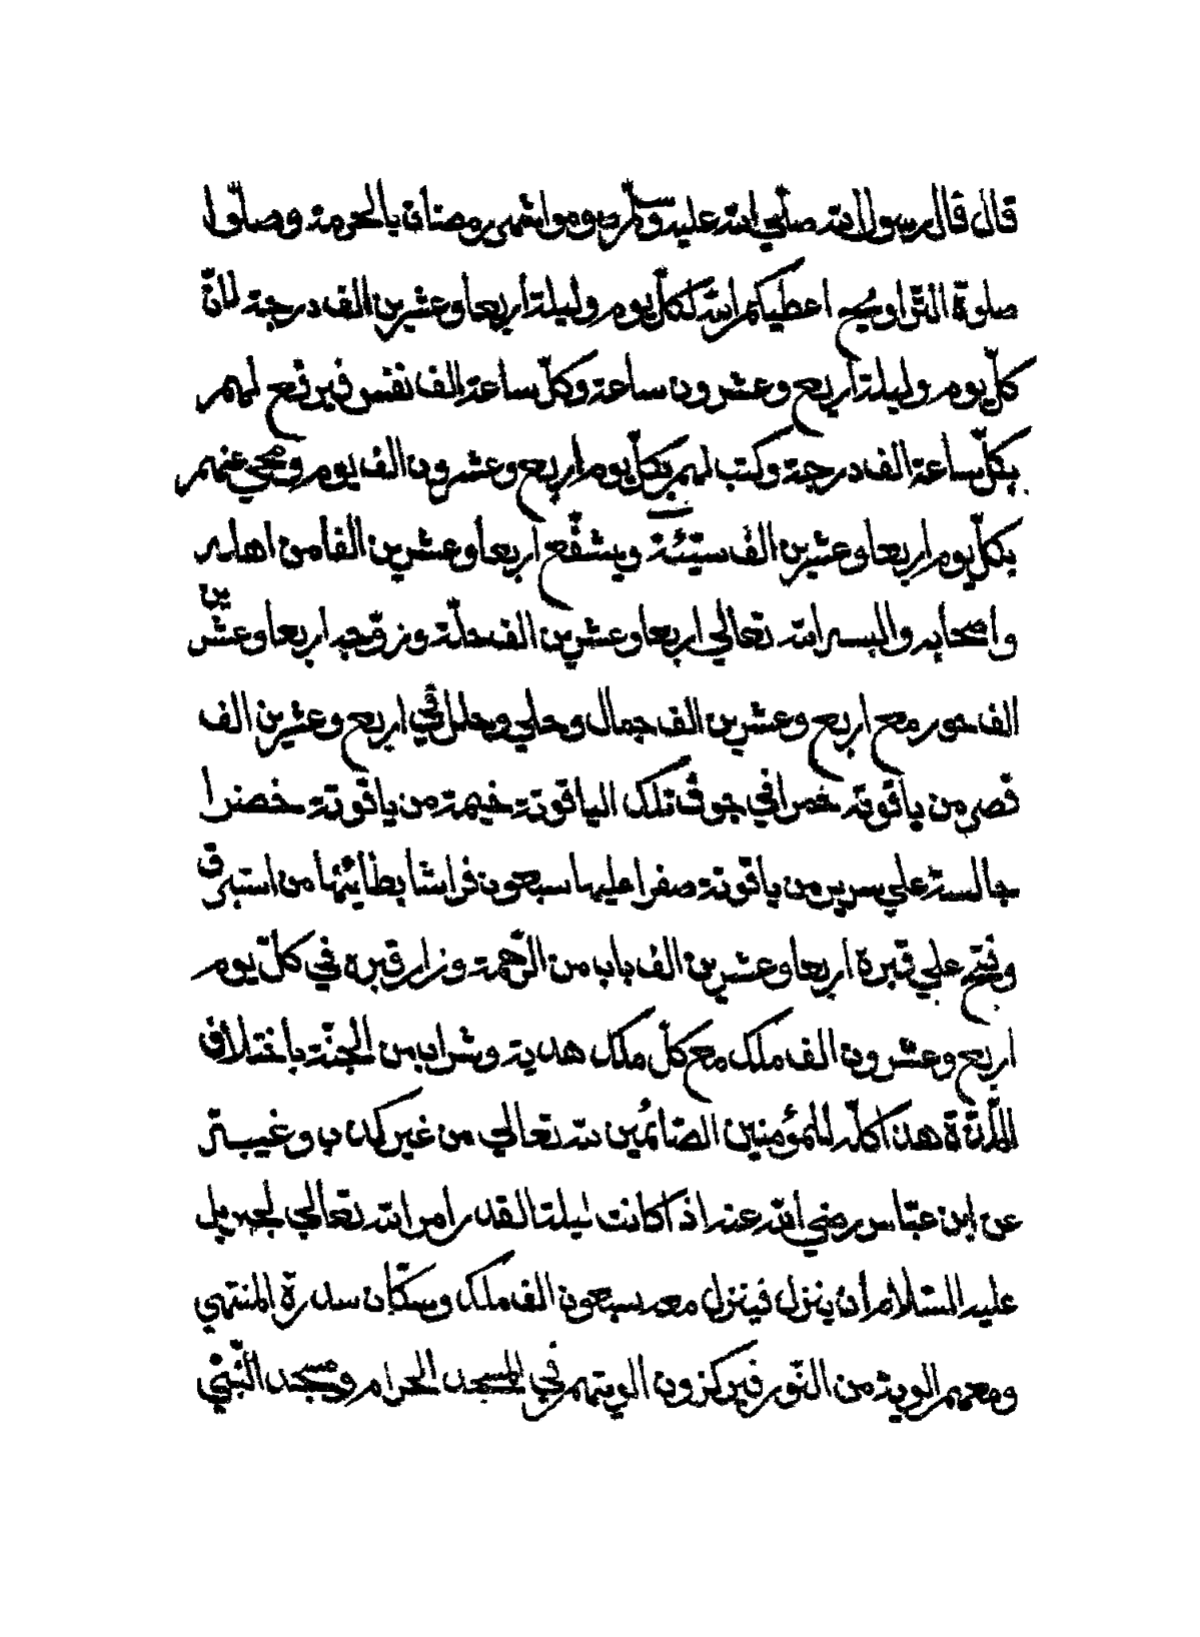 قال قال رسول الله صلّي الله عليه وسلّم صوموا شهر رمضان بالحرمة وصلّوا
صلوة التّراويح اعطيكم الله لكلّ يوم وليلة أربعا وعشرين الف درجة لانّ
كلّ يوم وليلة أربع وعشرون ساعة وكلّ ساعة الف نفس فيرفع لهم
بكلّ ساعة الف درجة وكتب لهم بكلّ يوم اربع وعشرون الف يوم ومحي عنهم
بكلّ يوم اربعا وعشرين الف سيّئة ويشفّع أربعا وعشرين الفا من اهله
واصحابه والبسه الله تعالي اربعا وعشرين الف حلّة وزوّجه اربعا وعشرين
الف حور مع اربع وعشرين الف جمال وحلي وحلل في اربع وعشرين الف
قصر من ياقوتة حمرا في جوف تلك الياقوتة خيمة من ياقوتة خضرا
جالسة علي سرير من ياقوتة صفرا عليها سبعون فراشا بطائنها من استبرق
وفتح علي قبره اربعا وعشرين الف باب من الرّحمة وزار قبره في كلّ يوم
اربع وعشرون الف ملك مع كلّ ملك هدية وشراب من الجنّة باختلاف
اللّذة هذا كلّه للمؤمنين الصّائمين لله تعالي من غير كذب وغيبة
عن ابن عبّاس رضي الله عنه اذا كانت ليلة القدر أمر الله تعالي لجبريل
عليه السّلام أن ينزل فينزل معه سبعون الف ملك وسكّان سدرة المنتهي
ومعهم الوية من النّور فيركزون الويتهم في المسجد الحرام ومسجد النّبي